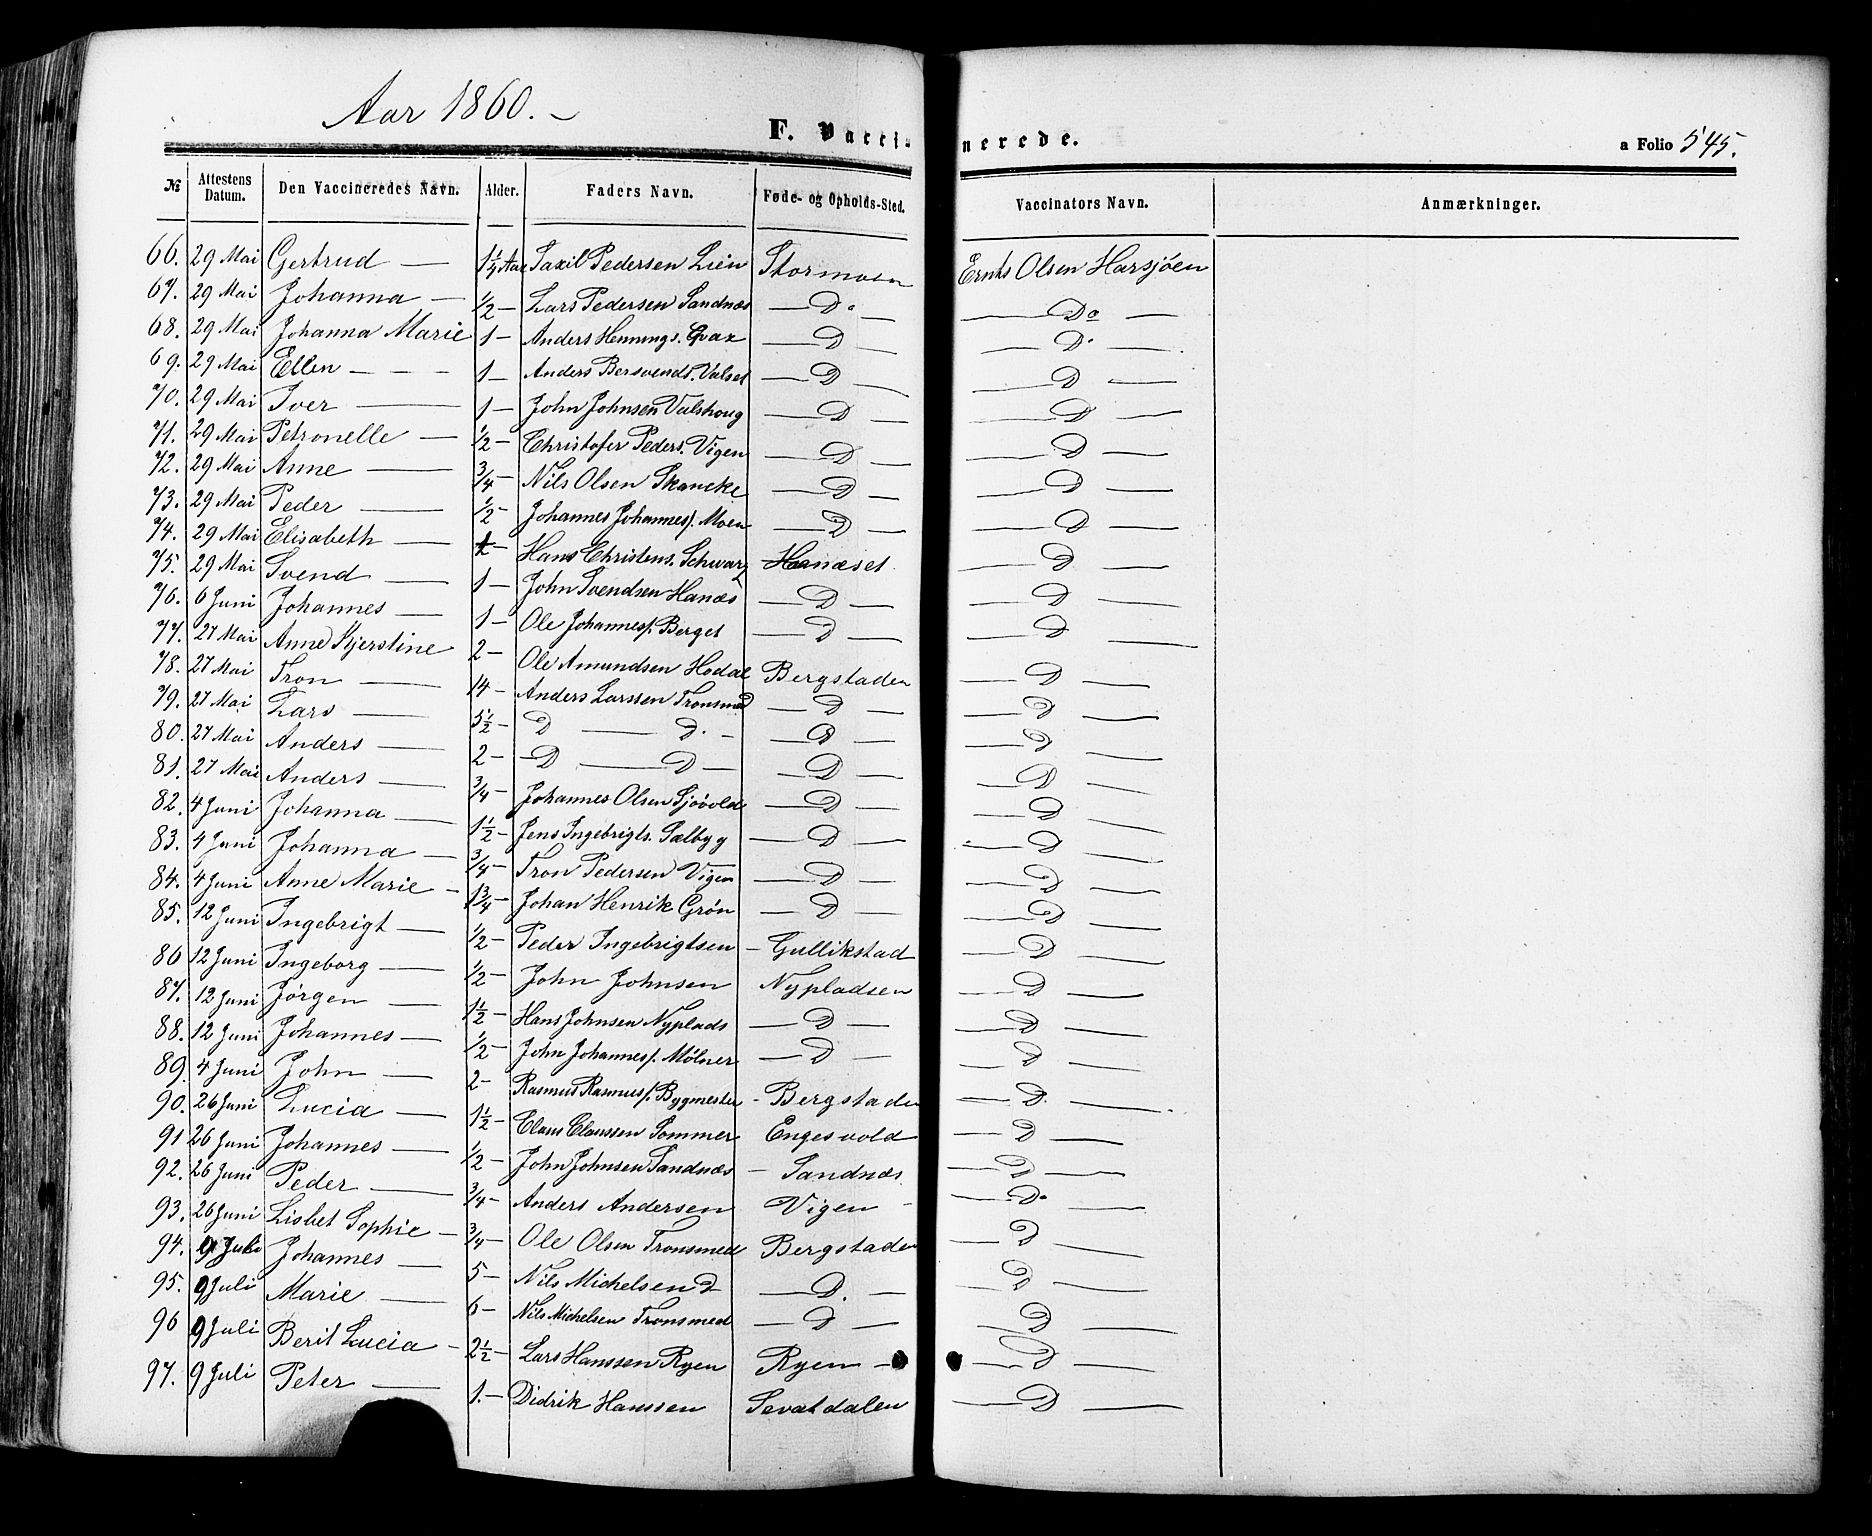 Aar 1860. –
F. Vaccinerede. a Folio 545.
№ Attestens Datum. Den Vaccineredes Navn. Alder. Faders Navn. Føde- og Opholds-Sted. Vaccinators Navn. Anmærkninger.
66. 29 Mai Gertrud — 1 1/4 Aar Taxil Pedersen Lien Stormoen Ernts Olsen Harsjøen
67. 29 Mai Johanna — 1/2 – Lars Pedersen Sandnæs — Do — — Do —
68. 29 Mai Johanna Marie 1 – Anders Hennings. Qvaz — D — — D —
69. 29 Mai Ellen – – – 1 – Anders Bersvends. Valset — D — — D —
70. 29 Mai Iver — 1 – John Johnsen Valshoug — D — — D —
71. 29 Mai Petronelle — 1/2 – Christofer Peders. Vigen — D — — D —
72. 29 Mai Anne — 3/4 – Nils Olsen Skancke — D — — D —
73. 29 Mai Peder — 1/2 – Johannes Johannes/. Moen — D — — D —
74. 29 Mai Elisabeth — 1/2 – Hans Christens. Schwarz Hanæset — D —
75. 29 Mai Svend — 1 – John Svendsen Hanæs — D — — D —
76. 6 Juni Johannes — 1 – Ole Johannes/. Berget — D — — D —
77. 27 Mai Anne Kjerstine 2 – Ole Amundsen Hodal Bergstaden — D —
78. 27 Mai Tron — 14 – Anders Larssen Tronsmed — D — — D —
79. 27 Mai Lars — 5 1/2 – D — D. – — D — — D —
80. 27 Mai Anders — 2 – – D — D – — D — — D —
81. 27 Mai Anders — 3/4 – Johannes Olsen Sjøvold — D — — D —
82. 4 Juni Johanna — 1 1/2 – Jens Ingebrigts. Sælbyg — D — — D —
83. 4 Juni Johanna — 3/4 – Tron Pedersen Vigen — D — — D —
84. 4 Juni Anne Marie – 1 3/4 – Johan Henrik Grøn — D — — D —
85. 12 Juni Ingebrigt — 1/2 – Peder Ingebrigtsen – Gullikstad — D —
86 12 Juni Ingeborg — 1/2 – John Johnsen Nypladsen — D —
87. 12 Juni Jørgen — 1 1/2 – Hans Johnsen Nyplads — D — — D —
88. 12 Juni Johannes — 1/2 – John Johannes/. Mølner — D — — D —
89. 4 Juni John — 2 – Rasmus Rasmus/. Bygmester – Bergstaden — D —
90. 26 Juni Lucia — 1 1/2 – Claus Claussen Sommer Engesvold — D —
91 26 Juni Johannes — 1/2 – John Johnsen Sandnæs – Sandnæs — D —
92. 26 Juni Peder — 3/4 – Anders Andersen Vigen – — D —
93. 26 Juni Lisbet Sophie – 3/4 – Ole Olsen Tronsmed Bergstaden — D —
94. 9 Juli Johannes — 5 – Nils Michelsen D — D. — — D —
95. 9 Juli Marie — 6 – Nils Michelsen Tronsmed — D — — D —
96 9 Juli Berit Lucia – 2 1/2 – Lars Hanssen Ryen Ryen – — D —
97. 9 Juli Peter — 1. – Didrik Hanssen Sevatdalen — D —